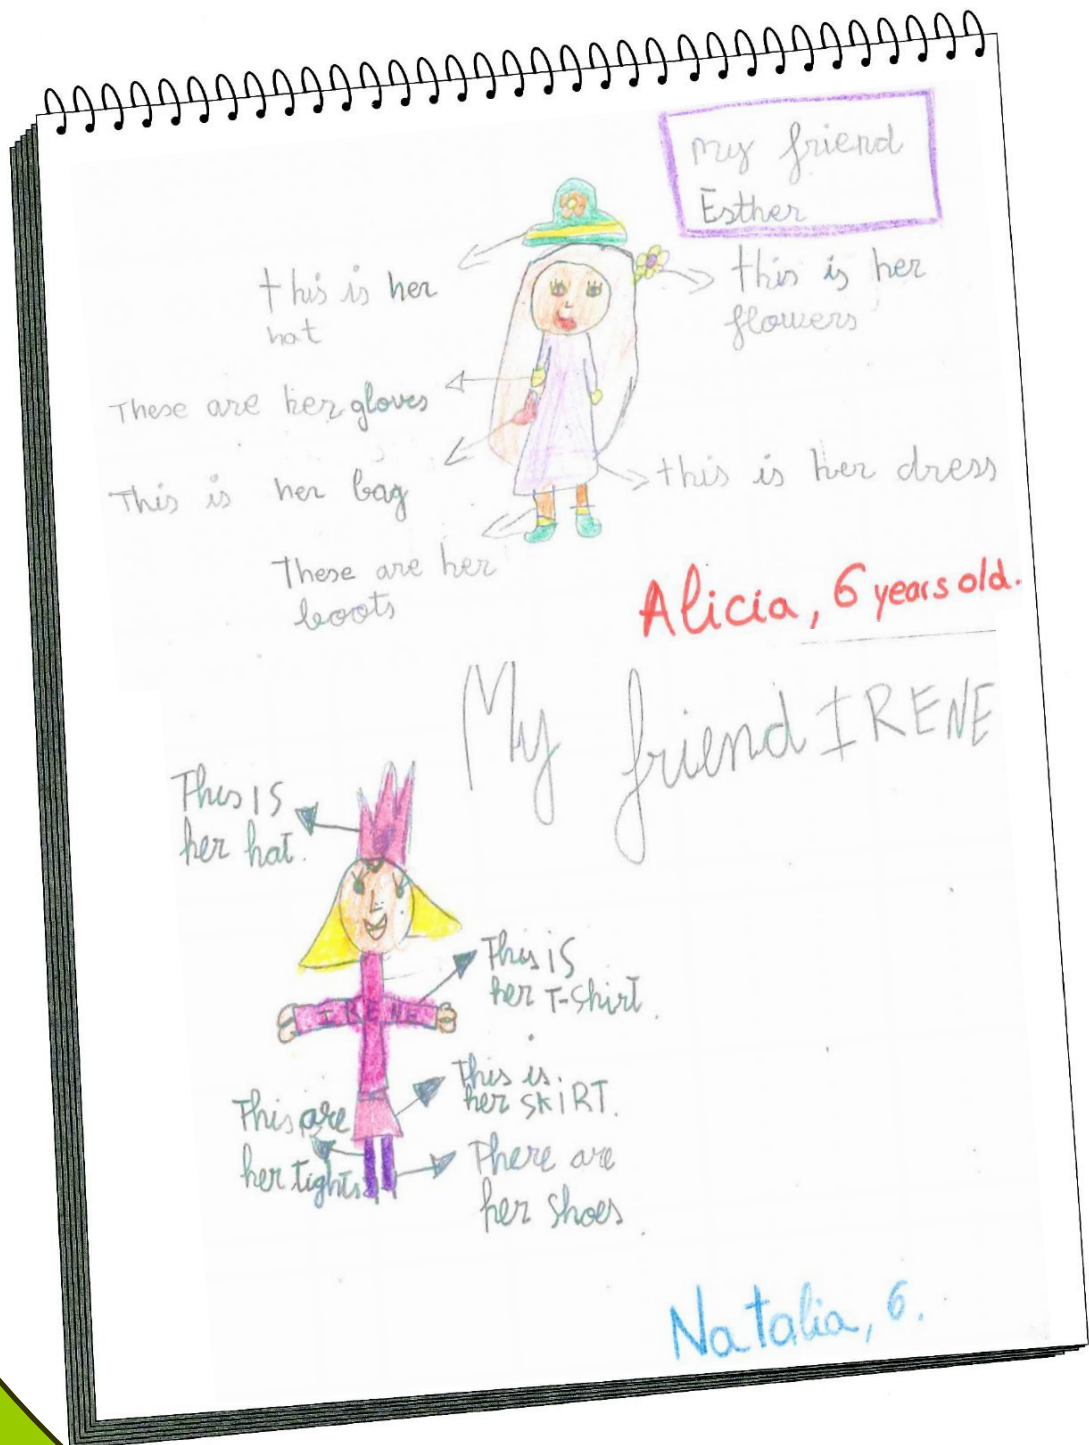 my friend
Esther
this is her
hat
this is her
flowers
These are her gloves
This is her bag
this is her dress
These are her
boots
Alicia, 6 years old.
My friend IRENE
This IS
her hat.
This iS
her T-Shirt.
This is.
her SKiRT.
This are
her tights
There are
her shoes.
IRENE
Natalia, 6.